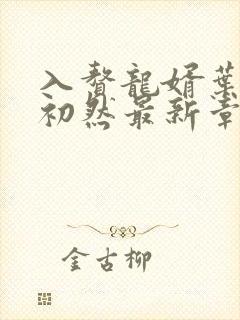 入赘龍婿葉
初然最新章
金古柳